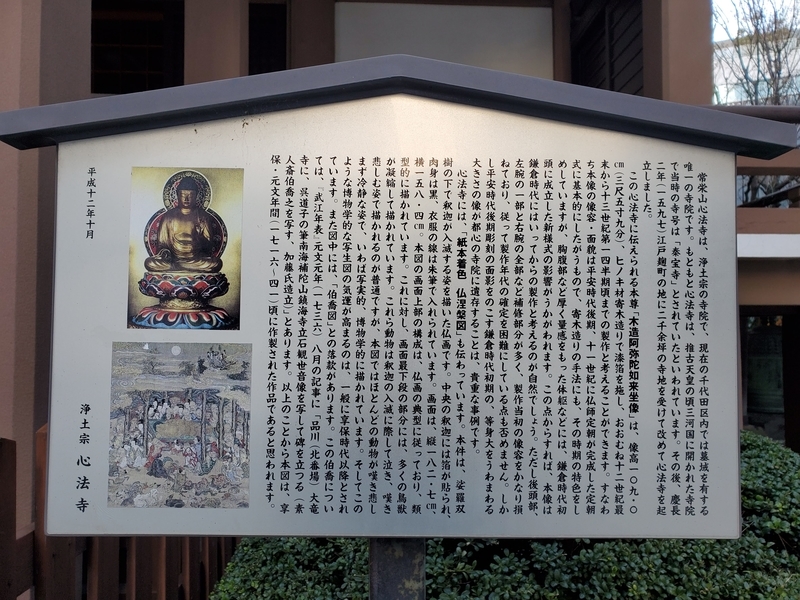 常栄山心法寺は、浄土宗の寺院で、現在の千代田区内では墓域を有する
唯一の寺院です。もともと心法寺は、推古天皇の頃三河国に開かれた寺院
で当時の寺号は「秦宝寺」とされていたといわれています。その後、慶長
二年（一五九七）江戸麹町の地に二千余坪の寺地を受けて改めて心法寺を起
立しました。
この心法寺に伝えられる本尊「木造阿弥陀如来坐像」は、像高一〇九・〇
cm（三尺五寸九分）、ヒノキ材寄木造りで漆箔を施し、おおむね十二世紀最
末から十三世紀第一四半期頃までの製作と考えることができます。すなわ
ち本像の像容・面貌は平安時代後期、十一世紀に仏師定朝が完成した定朝
式に基本的にしたがうもので、寄木造りの手法にも、その時期の特色をし
めしていますが、胸腹部など厚く量感をもった体躯などには、鎌倉時代初
頭に成立した新様式の影響がうかがわれます。この点からすれば、本像は
鎌倉時代にはいってからの製作と考えるのが自然でしょう。ただし後頭部、
左腕の一部と右腕の全部など補修部分が多く、製作当初の像容をかなり損
ねており、従って製作年代の確定を困難にしている点も否めません。しか
し平安時代後期彫刻の面影をのこす鎌倉時代初期の、等身大をうわまわる
大きさの像が都心の寺院に遺存することは、貴重な事例です。
心法寺には、「紙本着色 仏涅槃図」も伝わっています。本件は、娑羅双
樹の下で釈迦が入滅する姿を描いた仏画です。中央の釈迦には箔が貼られ
肉身は黒、衣服の線は朱筆で入れられています。画面は、縦一八二・七cm
横一五八・四cm。本図の画面上部の構成は、仏画の典型に従っており、類
型的に描かれています。これに対し、画面最下段の部分には、多くの鳥獣
が凝縮して描かれています。これら動物は釈迦の入滅に際して泣き、嘆き
悲しむ姿で描かれるのが普通ですが、本図ではほとんどの動物が嘆き悲し
まず冷静な姿で、いわば写実的、博物学的に描かれています。そしてこの
ような博物学的な写生図の気運が高まるのは、一般に享保時代以降とされ
ています。また図中には、「伯喬図」との落款があります。この伯喬につい
ては、『武江年表』元文元年（一七三六）八月の記事に「品川（北番場）大竜
寺に、呉道子の筆南海補陀山鎮海寺立石観世音像を写して碑を立つる（素
人斎伯喬之を写す、加藤氏造立）」とあります。以上のことから本図は、享
保・元文年間（一七一六〜四一）頃に作製された作品であると思われます。
平成十二年十月
浄土宗 心法寺